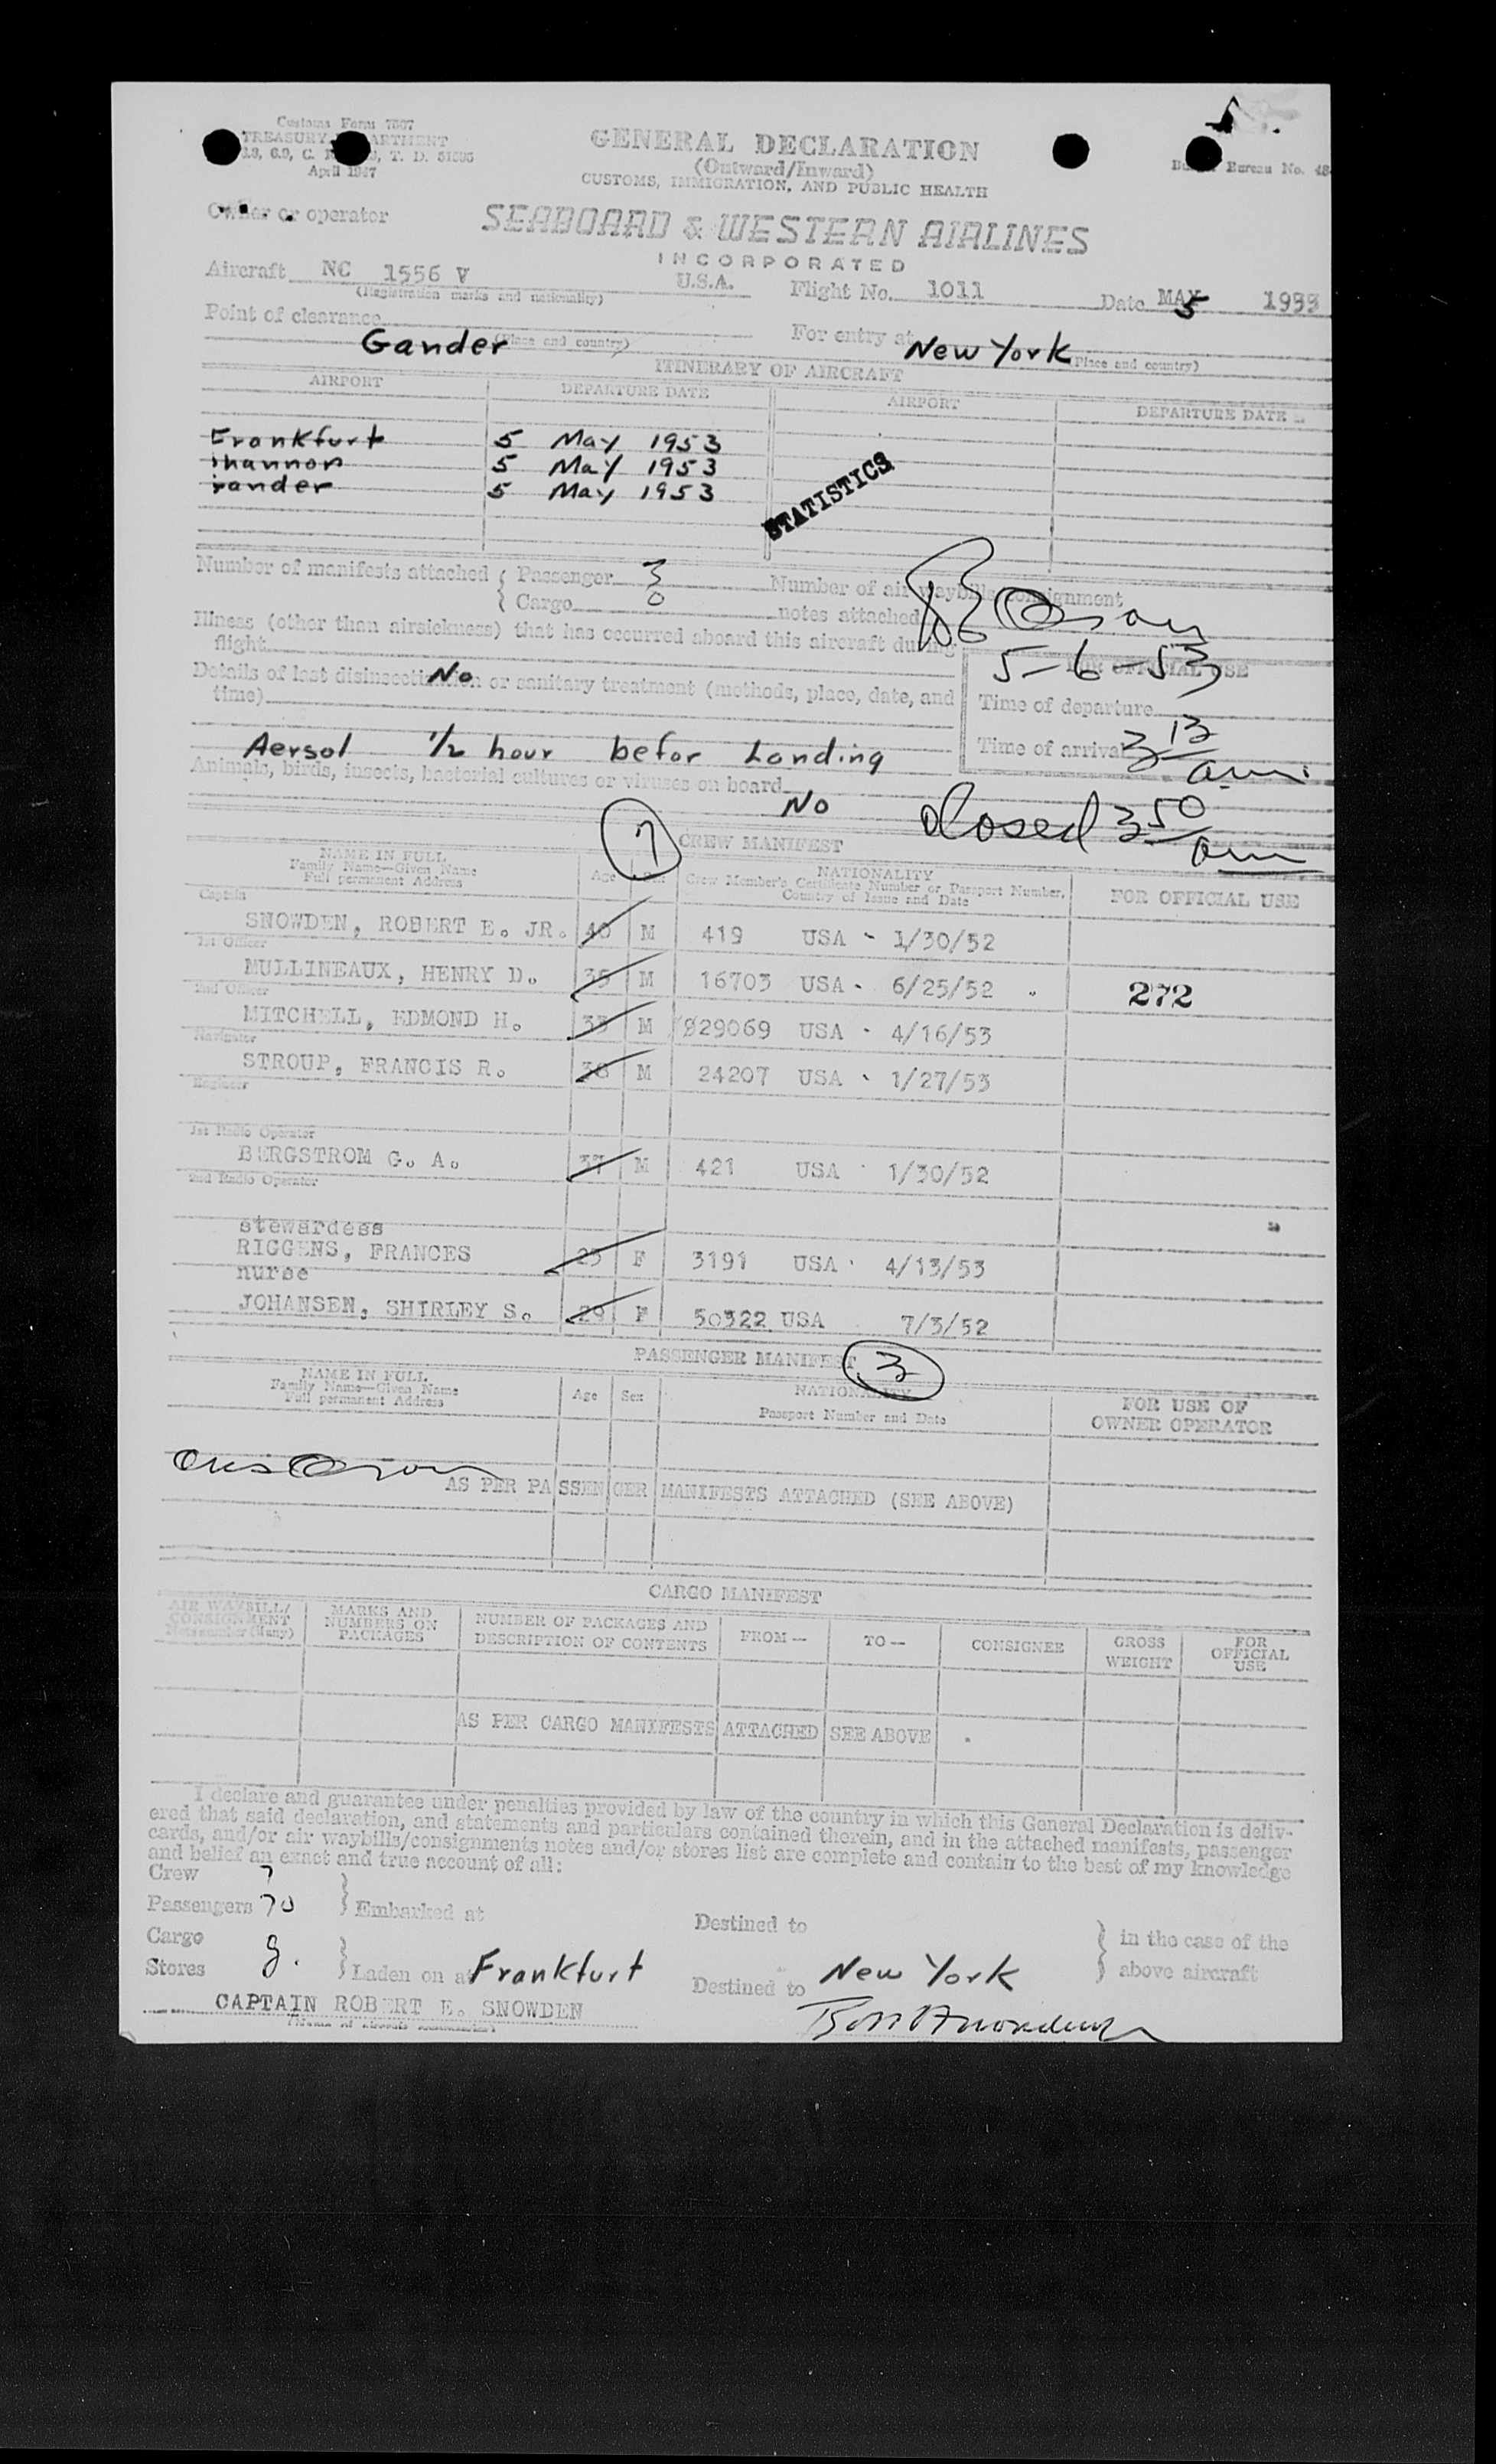 Customs Form 7507
TREASURY
April 1947
GENERAL DECLARATION
(Outward/Inward)
CUSTOMS, IMMIGRATION, AND PUBLIC HEALTH
Bureau No. 48
Owner or operator
SEABOARD & WESTERN AIRLINES
INCORPORATED
Aircraft NC 1556 V U.S.A. Flight No. 1011 Date MAY 5 1953
(Registration marks and nationality)
Point of clearance Gander For entry at New York
(Place and country) (Place and country)
ITINERARY OF AIRCRAFT
AIRPORT DEPARTURE DATE AIRPORT DEPARTURE DATE
Frankfurt 5 May 1953
hannon 5 May 1953
ander 5 May 1953
STATISTICS
Number of manifests attached { Passenger 3 Number of air waybills/consignment
{ Cargo 0 notes attached
Illness (other than airsickness) that has occurred aboard this aircraft during
flight No
5-6-53
FOR OFFICIAL USE
Details of last disinsectization or sanitary treatment (methods, place, date, and
time)
Time of departure
Aersol 1/2 hour befor Landing
Time of arrival 3 12 am
Animals, birds, insects, bacterial cultures or viruses on board No
closed 3 50 am
7
CREW MANIFEST
NAME IN FULL
Family Name—Given Name
Full permanent Address
Age Sex
NATIONALITY
Crew Member's Certificate Number or Passport Number,
Country of Issue and Date
FOR OFFICIAL USE
Captain
SNOWDEN, ROBERT E. JR. 40 M 419 USA - 1/30/52
1st Officer
MULLINEAUX, HENRY D. 36 M 16703 USA - 6/25/52 272
2nd Officer
MITCHELL, EDMOND H. 33 M 829069 USA - 4/16/53
Navigator
STROUP, FRANCIS R. 38 M 24207 USA - 1/27/53
Engineer
1st Radio Operator
BERGSTROM G. A. 37 M 421 USA 1/30/52
2nd Radio Operator
stewardess
RIGGENS, FRANCES 23 F 3191 USA 4/13/53
nurse
JOHANSEN, SHIRLEY S. 29 F 50322 USA 7/3/52
PASSENGER MANIFEST 3
NAME IN FULL
Family Name—Given Name
Full permanent Address
Age Sex
NATIONALITY
Passport Number and Date
FOR USE OF
OWNER OPERATOR
AS PER PASSENGER MANIFESTS ATTACHED (SEE ABOVE)
CARGO MANIFEST
AIR WAYBILL/
CONSIGNMENT
Note number (if any)
MARKS AND
NUMBERS ON
PACKAGES
NUMBER OF PACKAGES AND
DESCRIPTION OF CONTENTS
FROM— TO— CONSIGNEE
GROSS
WEIGHT
FOR
OFFICIAL
USE
AS PER CARGO MANIFESTS ATTACHED SEE ABOVE
I declare and guarantee under penalties provided by law of the country in which this General Declaration is deliv-
ered that said declaration, and statements and particulars contained therein, and in the attached manifests, passenger
cards, and/or air waybills/consignments notes and/or stores list are complete and contain to the best of my knowledge
and belief an exact and true account of all:
Crew 7
Passengers 70 } Embarked at Destined to } in the case of the
Cargo
Stores } Laden on at Frankfurt Destined to New York } above aircraft
CAPTAIN ROBERT E. SNOWDEN
(Name of aircraft commander)